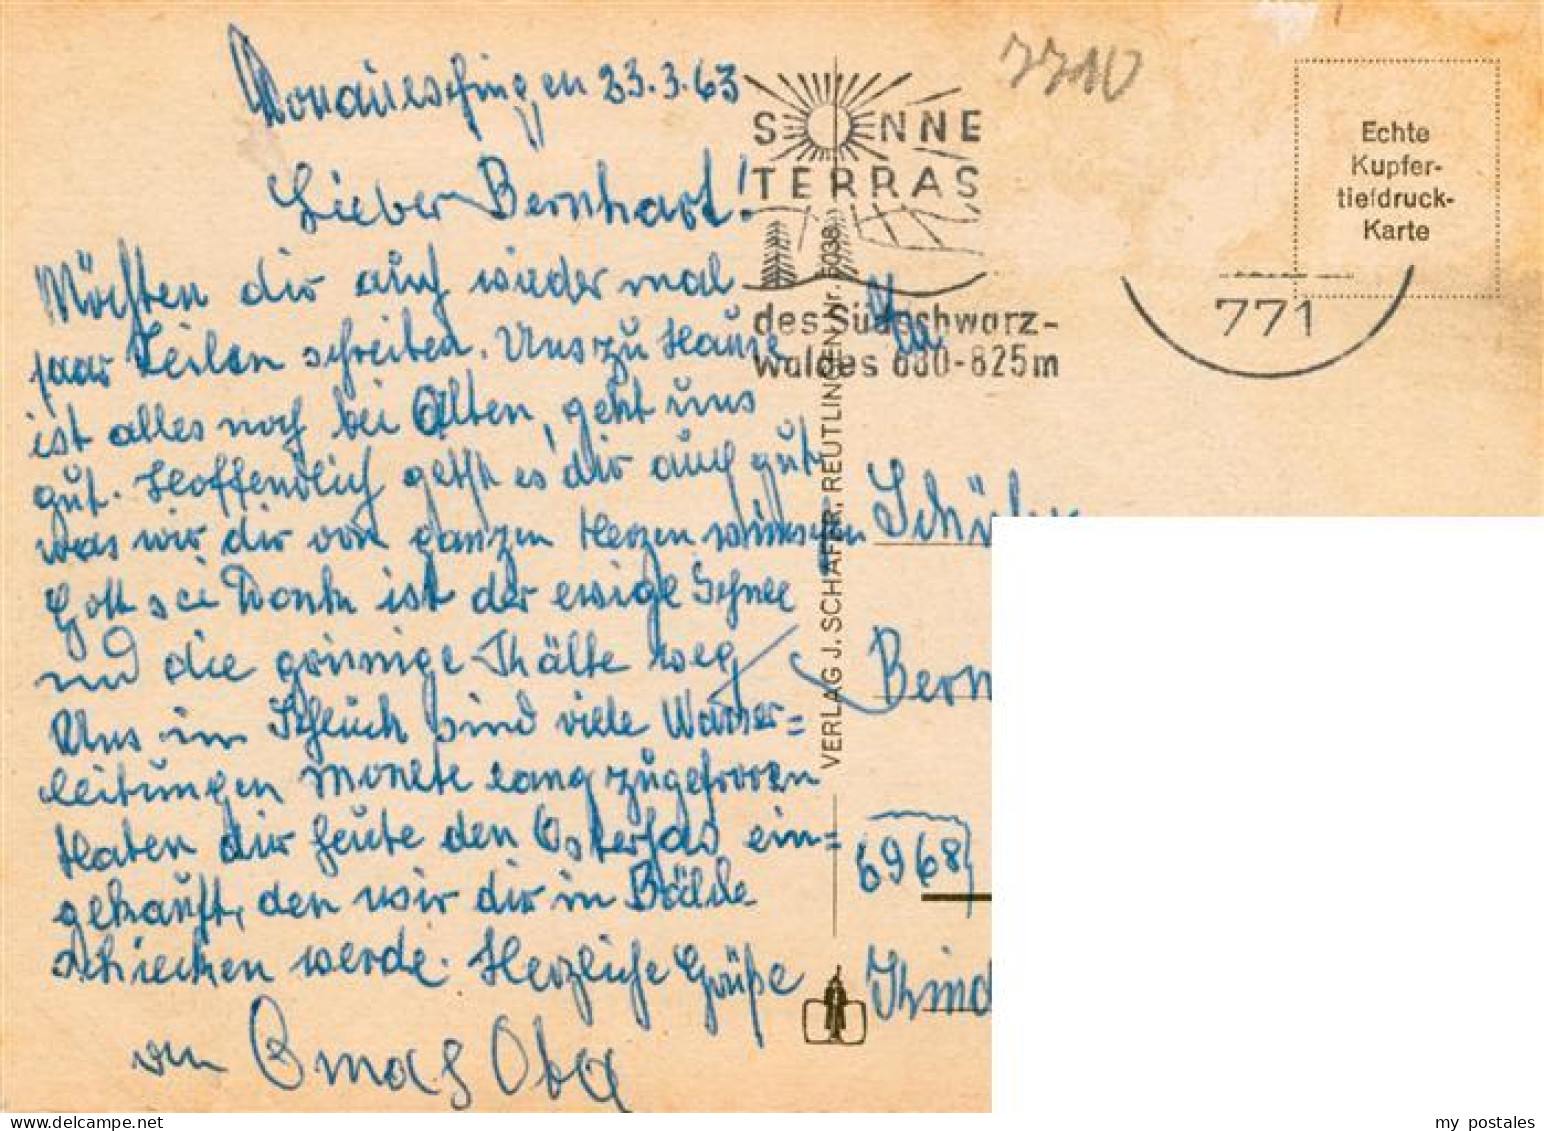 Donaueschingen 23.3.63
Lieber Bernhart!
Möchten dir auch wieder mal
paar Zeilen schreiben. Uns zu Hause
ist alles noch bei Alten, geht uns
gut. Hoffendlich geht es dir auch gut
was wir dir von ganzen Herzen wünschen
Gott sei Dank ist der ewige Schnee
und die grimmige Kälte weg
Uns im Schluch sind viele Wasser=
leitungen Monate lang zugefroren
Haben dir heute den Osterhas ein=
gekauft, den wir dir in Bälde
schicken werde. Herzliche Grüße
von Oma & Oba
7710
SONNE
TERRAS
des Südschwarz-
waldes 680-825m
771
Echte
Kupfer-
tiefdruck-
Karte
VERLAG J. SCHÄFER, REUTLINGEN Nr. 5038
An
Schüler
Bern
6968
Kind
my postales